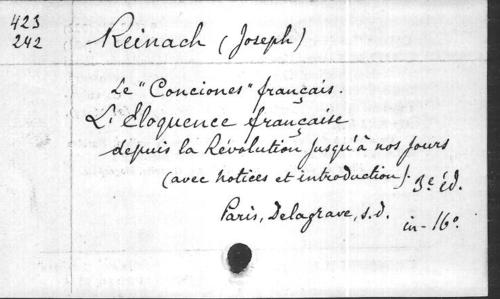 423
242
Reinach (Joseph)
Le "Conciones" français.
L'Éloquence française
depuis la Révolution jusqu'à nos jours
(avec notices et introduction). 3e éd.
Paris, Delagrave, s.d.
in-16°.